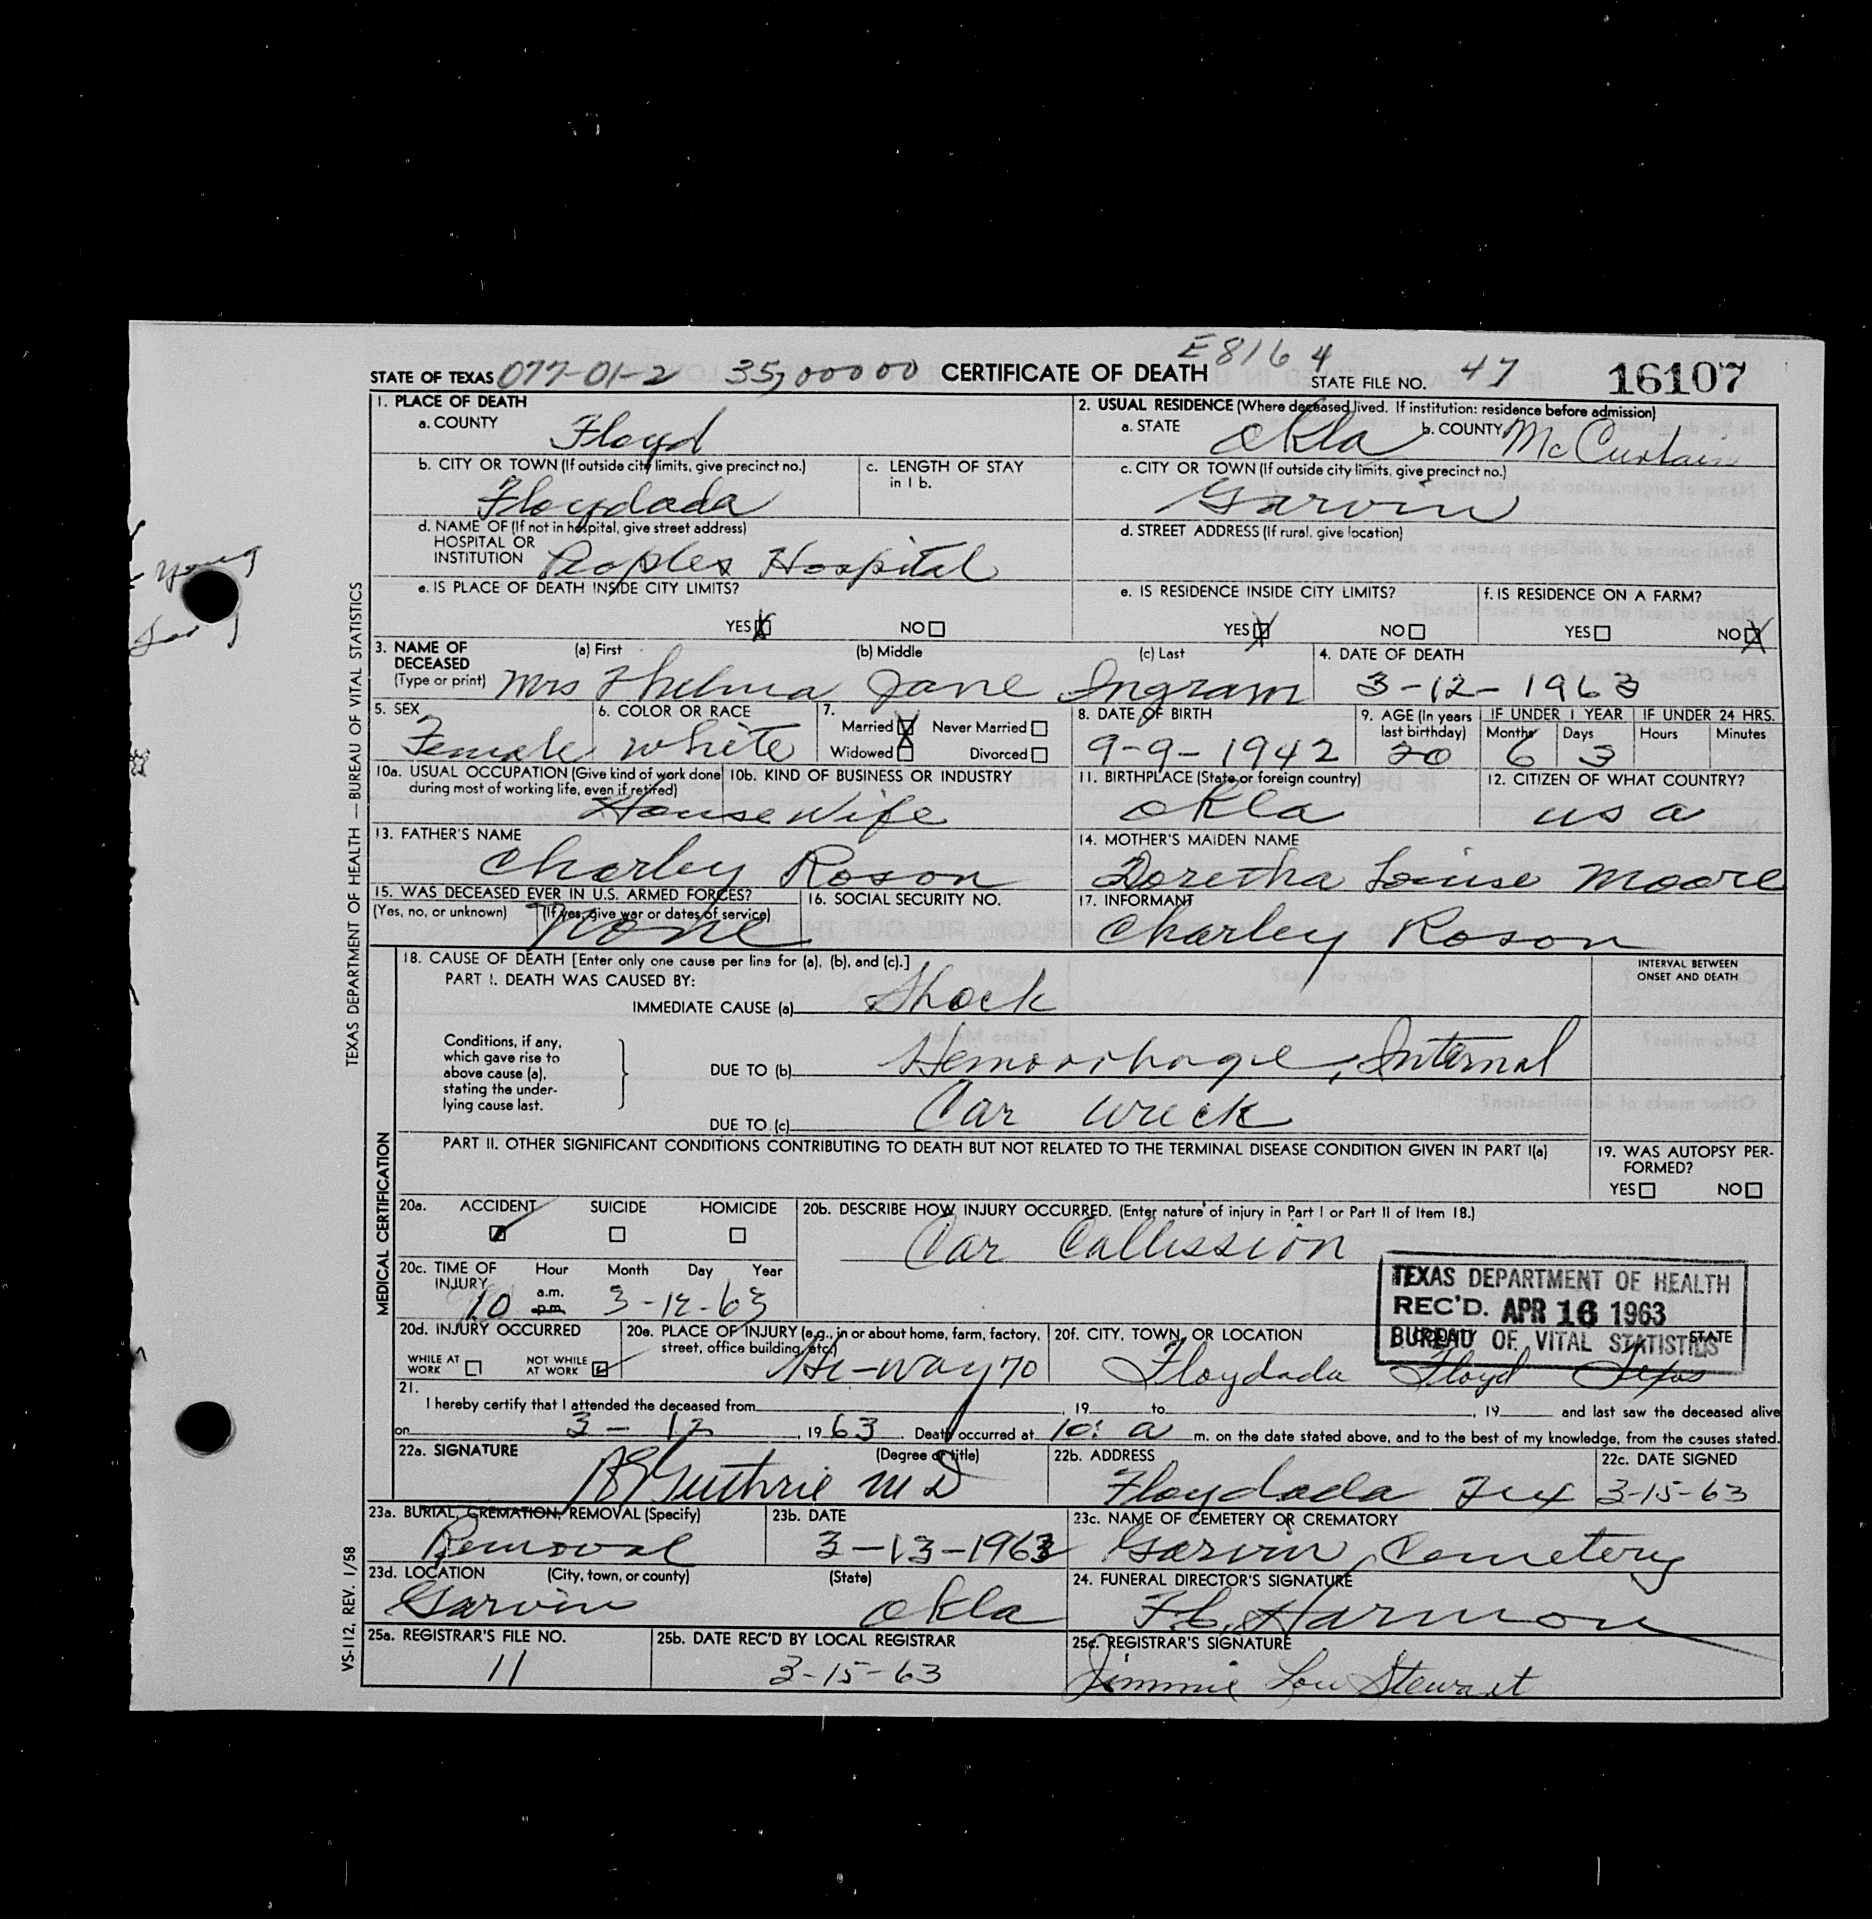 E8164
STATE OF TEXAS 077-01-2 35,00000 CERTIFICATE OF DEATH STATE FILE NO. 47 16107
1. PLACE OF DEATH
a. COUNTY Floyd
2. USUAL RESIDENCE (Where deceased lived. If institution: residence before admission)
a. STATE Okla b. COUNTY McCurtain
b. CITY OR TOWN (If outside city limits, give precinct no.) Floydada
c. LENGTH OF STAY in 1 b.
c. CITY OR TOWN (If outside city limits, give precinct no.) Garvin
d. NAME OF (If not in hospital, give street address)
HOSPITAL OR
INSTITUTION Peoples Hospital
d. STREET ADDRESS (If rural, give location)
e. IS PLACE OF DEATH INSIDE CITY LIMITS?
YES NO
e. IS RESIDENCE INSIDE CITY LIMITS?
YES NO
f. IS RESIDENCE ON A FARM?
YES NO
3. NAME OF DECEASED (Type or print)
(a) First (b) Middle (c) Last
Mrs Thelma Jane Ingram
4. DATE OF DEATH
3-12-1963
5. SEX
Female
6. COLOR OR RACE
White
7. Married Never Married
Widowed Divorced
8. DATE OF BIRTH
9-9-1942
9. AGE (In years last birthday)
20
IF UNDER 1 YEAR
Months Days
6 3
IF UNDER 24 HRS.
Hours Minutes
10a. USUAL OCCUPATION (Give kind of work done during most of working life, even if retired)
10b. KIND OF BUSINESS OR INDUSTRY
House Wife
11. BIRTHPLACE (State or foreign country)
Okla
12. CITIZEN OF WHAT COUNTRY?
usa
13. FATHER'S NAME
Charley Roson
14. MOTHER'S MAIDEN NAME
Doretha Louise Moore
15. WAS DECEASED EVER IN U.S. ARMED FORCES?
(Yes, no, or unknown) (If yes, give war or dates of service)
None
16. SOCIAL SECURITY NO.
17. INFORMANT
Charley Roson
18. CAUSE OF DEATH [Enter only one cause per line for (a), (b), and (c).]
PART I. DEATH WAS CAUSED BY:
IMMEDIATE CAUSE (a) Shock
INTERVAL BETWEEN
ONSET AND DEATH
Conditions, if any,
which gave rise to
above cause (a),
stating the under-
lying cause last.
DUE TO (b) Hemorrhage, Internal
DUE TO (c) Car Wreck
PART II. OTHER SIGNIFICANT CONDITIONS CONTRIBUTING TO DEATH BUT NOT RELATED TO THE TERMINAL DISEASE CONDITION GIVEN IN PART I(a)
19. WAS AUTOPSY PER-
FORMED?
YES NO
20a. ACCIDENT SUICIDE HOMICIDE
20b. DESCRIBE HOW INJURY OCCURRED. (Enter nature of injury in Part I or Part II of Item 18.)
Car Collission
20c. TIME OF INJURY
Hour Month Day Year
10 a.m. p.m. 3-12-63
TEXAS DEPARTMENT OF HEALTH
REC'D. APR 16 1963
BUREAU OF VITAL STATISTICS
20d. INJURY OCCURRED
WHILE AT WORK NOT WHILE AT WORK
20e. PLACE OF INJURY (e.g., in or about home, farm, factory, street, office building, etc.)
Hi-Way 70
20f. CITY, TOWN, OR LOCATION COUNTY STATE
Floydada Floyd Texas
21.
I hereby certify that I attended the deceased from , 19 to , 19 and last saw the deceased alive
on 3-12, 1963. Death occurred at 10: a m. on the date stated above, and to the best of my knowledge, from the causes stated.
22a. SIGNATURE (Degree or title)
Guthrie MD
22b. ADDRESS
Floydada Tex
22c. DATE SIGNED
3-15-63
23a. BURIAL, CREMATION, REMOVAL (Specify)
Removal
23b. DATE
3-13-1963
23c. NAME OF CEMETERY OR CREMATORY
Garvin Cemetery
23d. LOCATION (City, town, or county) (State)
Garvin Okla
24. FUNERAL DIRECTOR'S SIGNATURE
F.C. Harmon
25a. REGISTRAR'S FILE NO.
11
25b. DATE REC'D BY LOCAL REGISTRAR
3-15-63
25c. REGISTRAR'S SIGNATURE
Jimmie Lou Stewart
TEXAS DEPARTMENT OF HEALTH — BUREAU OF VITAL STATISTICS
MEDICAL CERTIFICATION
VS-112, REV. 1/58